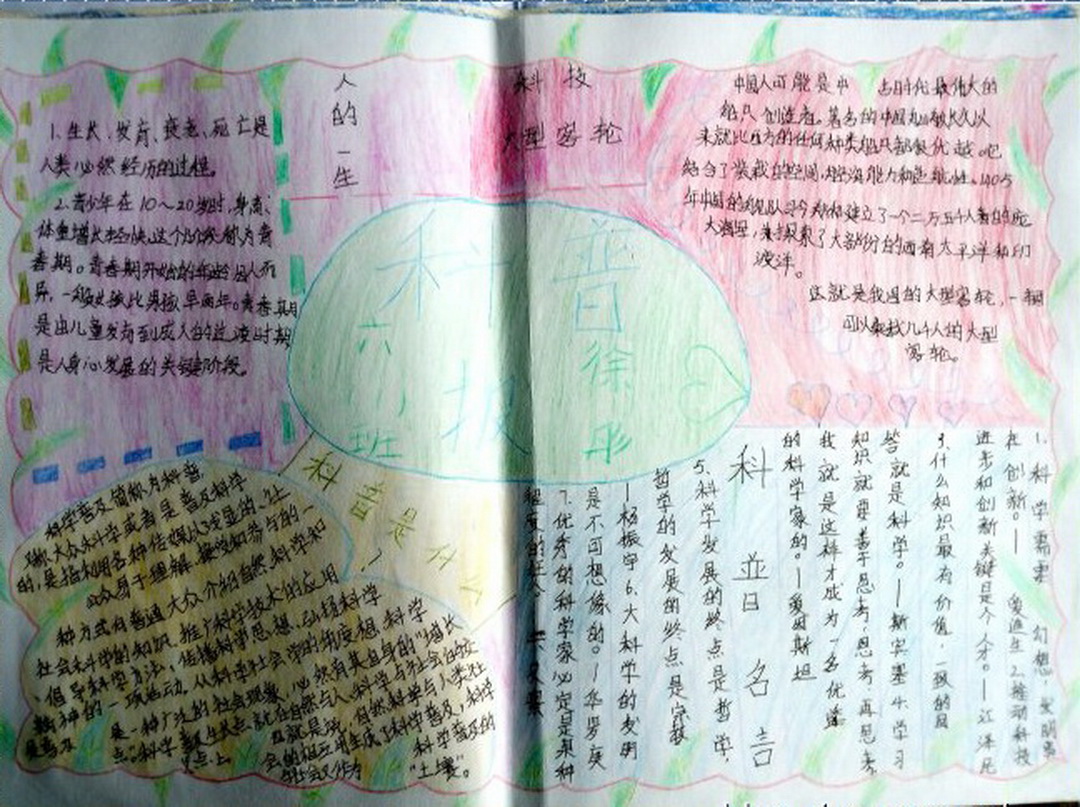 人的一生
1.生长、发育、衰老、死亡是
人类必然经历的过程。
2.青少年在10～20岁时,身高、
体重增长较快,这个阶段称为青
春期。青春期开始的年龄因人而
异,一般女孩比男孩早两年。青春期
是由儿童发育到成人的过渡时期
是人身心发展的关键阶段。
科技
大型客轮
中国人可能是中 古时代最伟大的
船只创造者。著名的中国
来就比西方的任何种类船只都更优越。它
结合了装载的空间,
年中国的舰队司令郑和建立了一个二万五千人
大海里,并探索了大部份的西南太平洋和印
度洋。
这就是我国的大型客轮,一艘
可以乘载几千人的大型
客轮。
科普
报
六(1)
班
徐
彤
科普是什么
科学普及简称为科普,
又称大众科学或者是普及科学
的,是指利用各种传媒以浅显的、让
公众易于理解、接受和参与的
种方式向普通大众介绍自然科学和
社会科学的知识、推广科学技术的应用
、倡导科学方法、传播科学思想、弘扬科学
精神的一项活动。从科学社会学的角度想,科学
是一种广泛的社会现象,必然有其自身的“增长
点”。科学普及生长点就在自然与人、科学与社会的交
点上。也就是说,自然科学与人类社
会的相互作用生成了科学普及,科学
的社会又作为科学普及的
“土壤”。
科普名言
1.科学需要幻想,发明贵
在创新。—爱迪生 2.推动科技
进步和创新关键是人才。—江泽民
3.什么知识最有价值,一致的回
答就是科学。—斯宾塞 4.学习
知识就要善于思考,思考,再思考
我就是这样才成为一名优秀
的科学家的。—爱因斯坦
5.科学发展的终点是哲学,
哲学的发展的终点是宗教
—杨振宁 6.大科学的发明
是不可想像的。—华罗庚
7.优秀的科学家必定是某种
程度的狂人